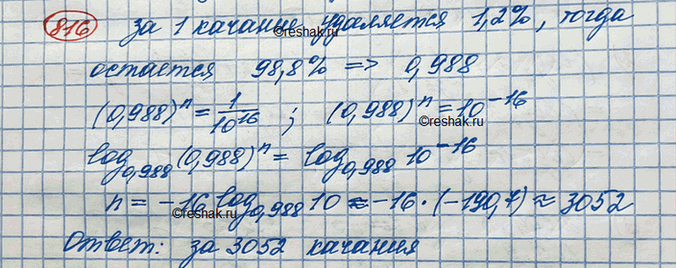 816 за 1 качание удаляется 1,2%, тогда
остается 98,8% => 0,988
(0,988)ⁿ = 1/10¹⁶ ; (0,988)ⁿ = 10⁻¹⁶
log₀,₉₈₈ (0,988)ⁿ = log₀,₉₈₈ 10⁻¹⁶
n = -16 log₀,₉₈₈ 10 ≈ -16 · (-190,7) ≈ 3052
Ответ: за 3052 качания
©reshak.ru
©reshak.ru
©reshak.ru
©reshak.ru